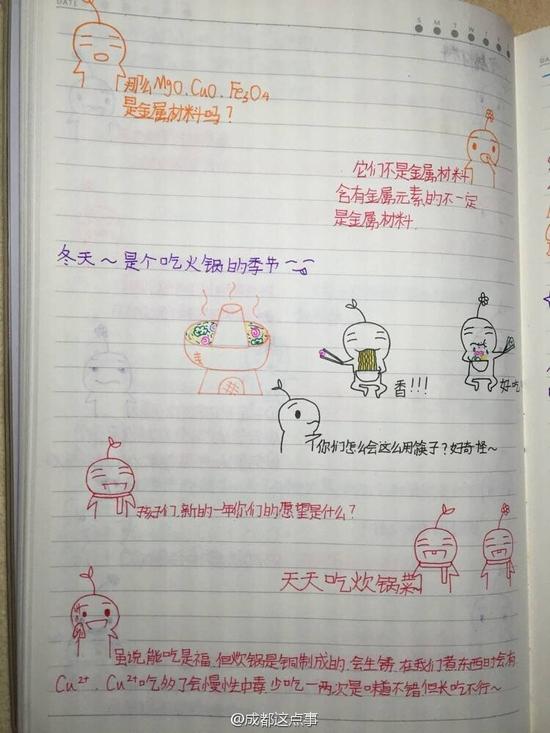 DATE
S M T W T F S
那么MgO、CuO、Fe₃O₄
是金属材料吗？
它们不是金属材料
含有金属元素的不一定
是金属材料.
冬天～是个吃火锅的季节
香!!!
好吃!
你们怎么会这么用筷子？好奇怪～
孩子们，新的一年你们的愿望是什么？
天天吃炊锅菜
虽说，能吃是福，但炊锅是铜制成的，会生锈，在我们煮东西时会有
Cu²⁺，Cu²⁺吃多了会慢性中毒，少吃一两次是味道不错，但长吃不行～
@成都这点事